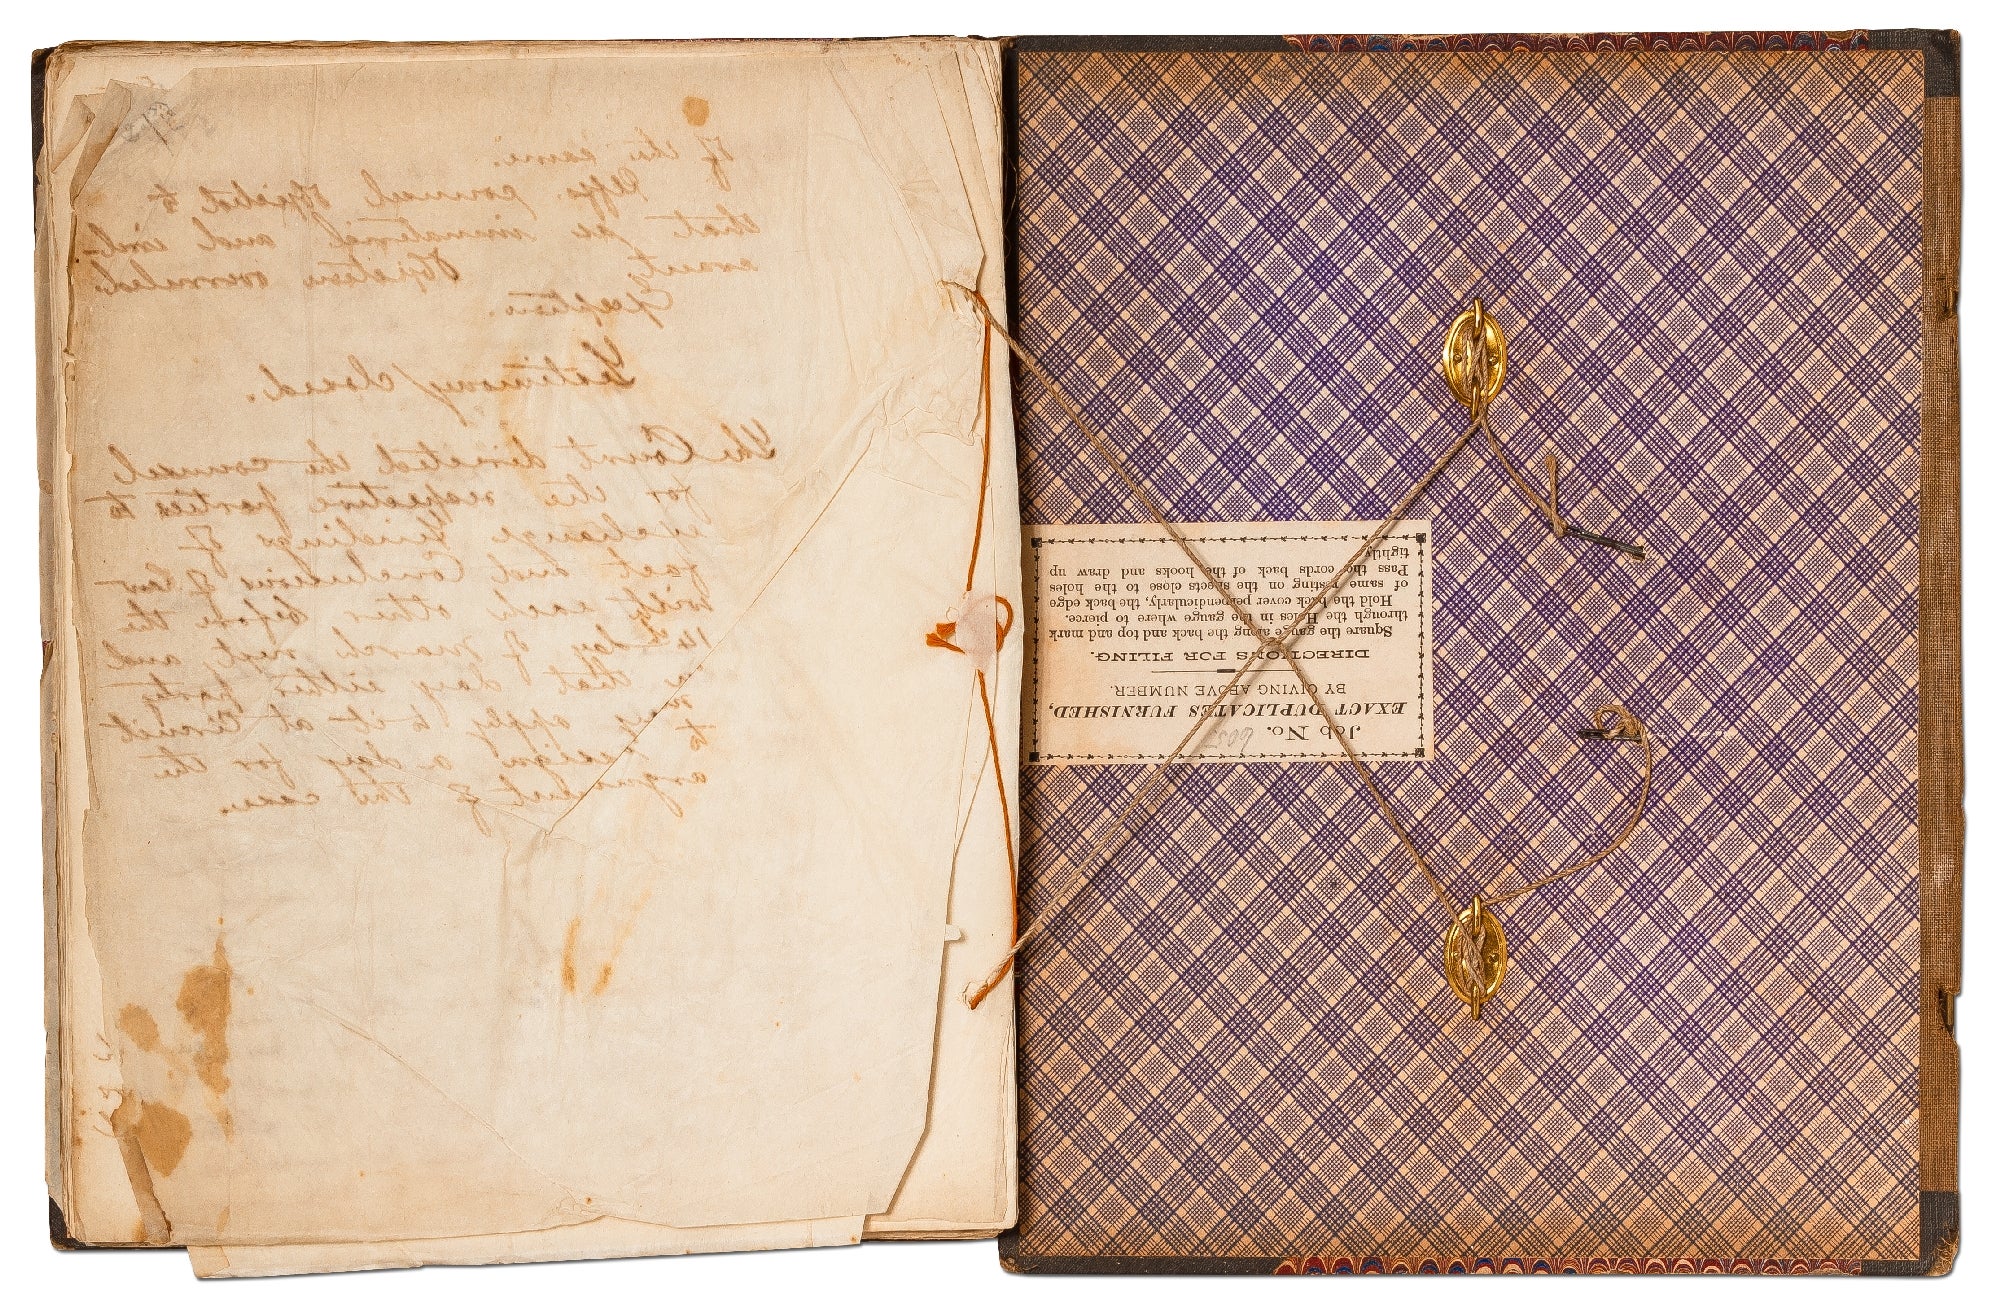 of the same.
Plffs. counsel objected to
that as immaterial and irrel-
evant, Objection overruled.
Exception.
Testimony closed.
The Court directed the counsel
for the respective parties to
exchange findings of
fact and Conclusions of law
with each other before the
12th day of March next and
on that day either party
may apply to it at Circuit
to assign a day for the
argument of this case.
Job No. 6057
EXACT DUPLICATES FURNISHED,
BY GIVING ABOVE NUMBER.
DIRECTIONS FOR FILING.
Square the gauge along the back and top and mark
through the Holes in the gauge where to pierce.
Hold the back cover perpendicularly, the back edge
of same resting on the sheets close to the holes
Pass the cords back of the hooks and draw up
tightly